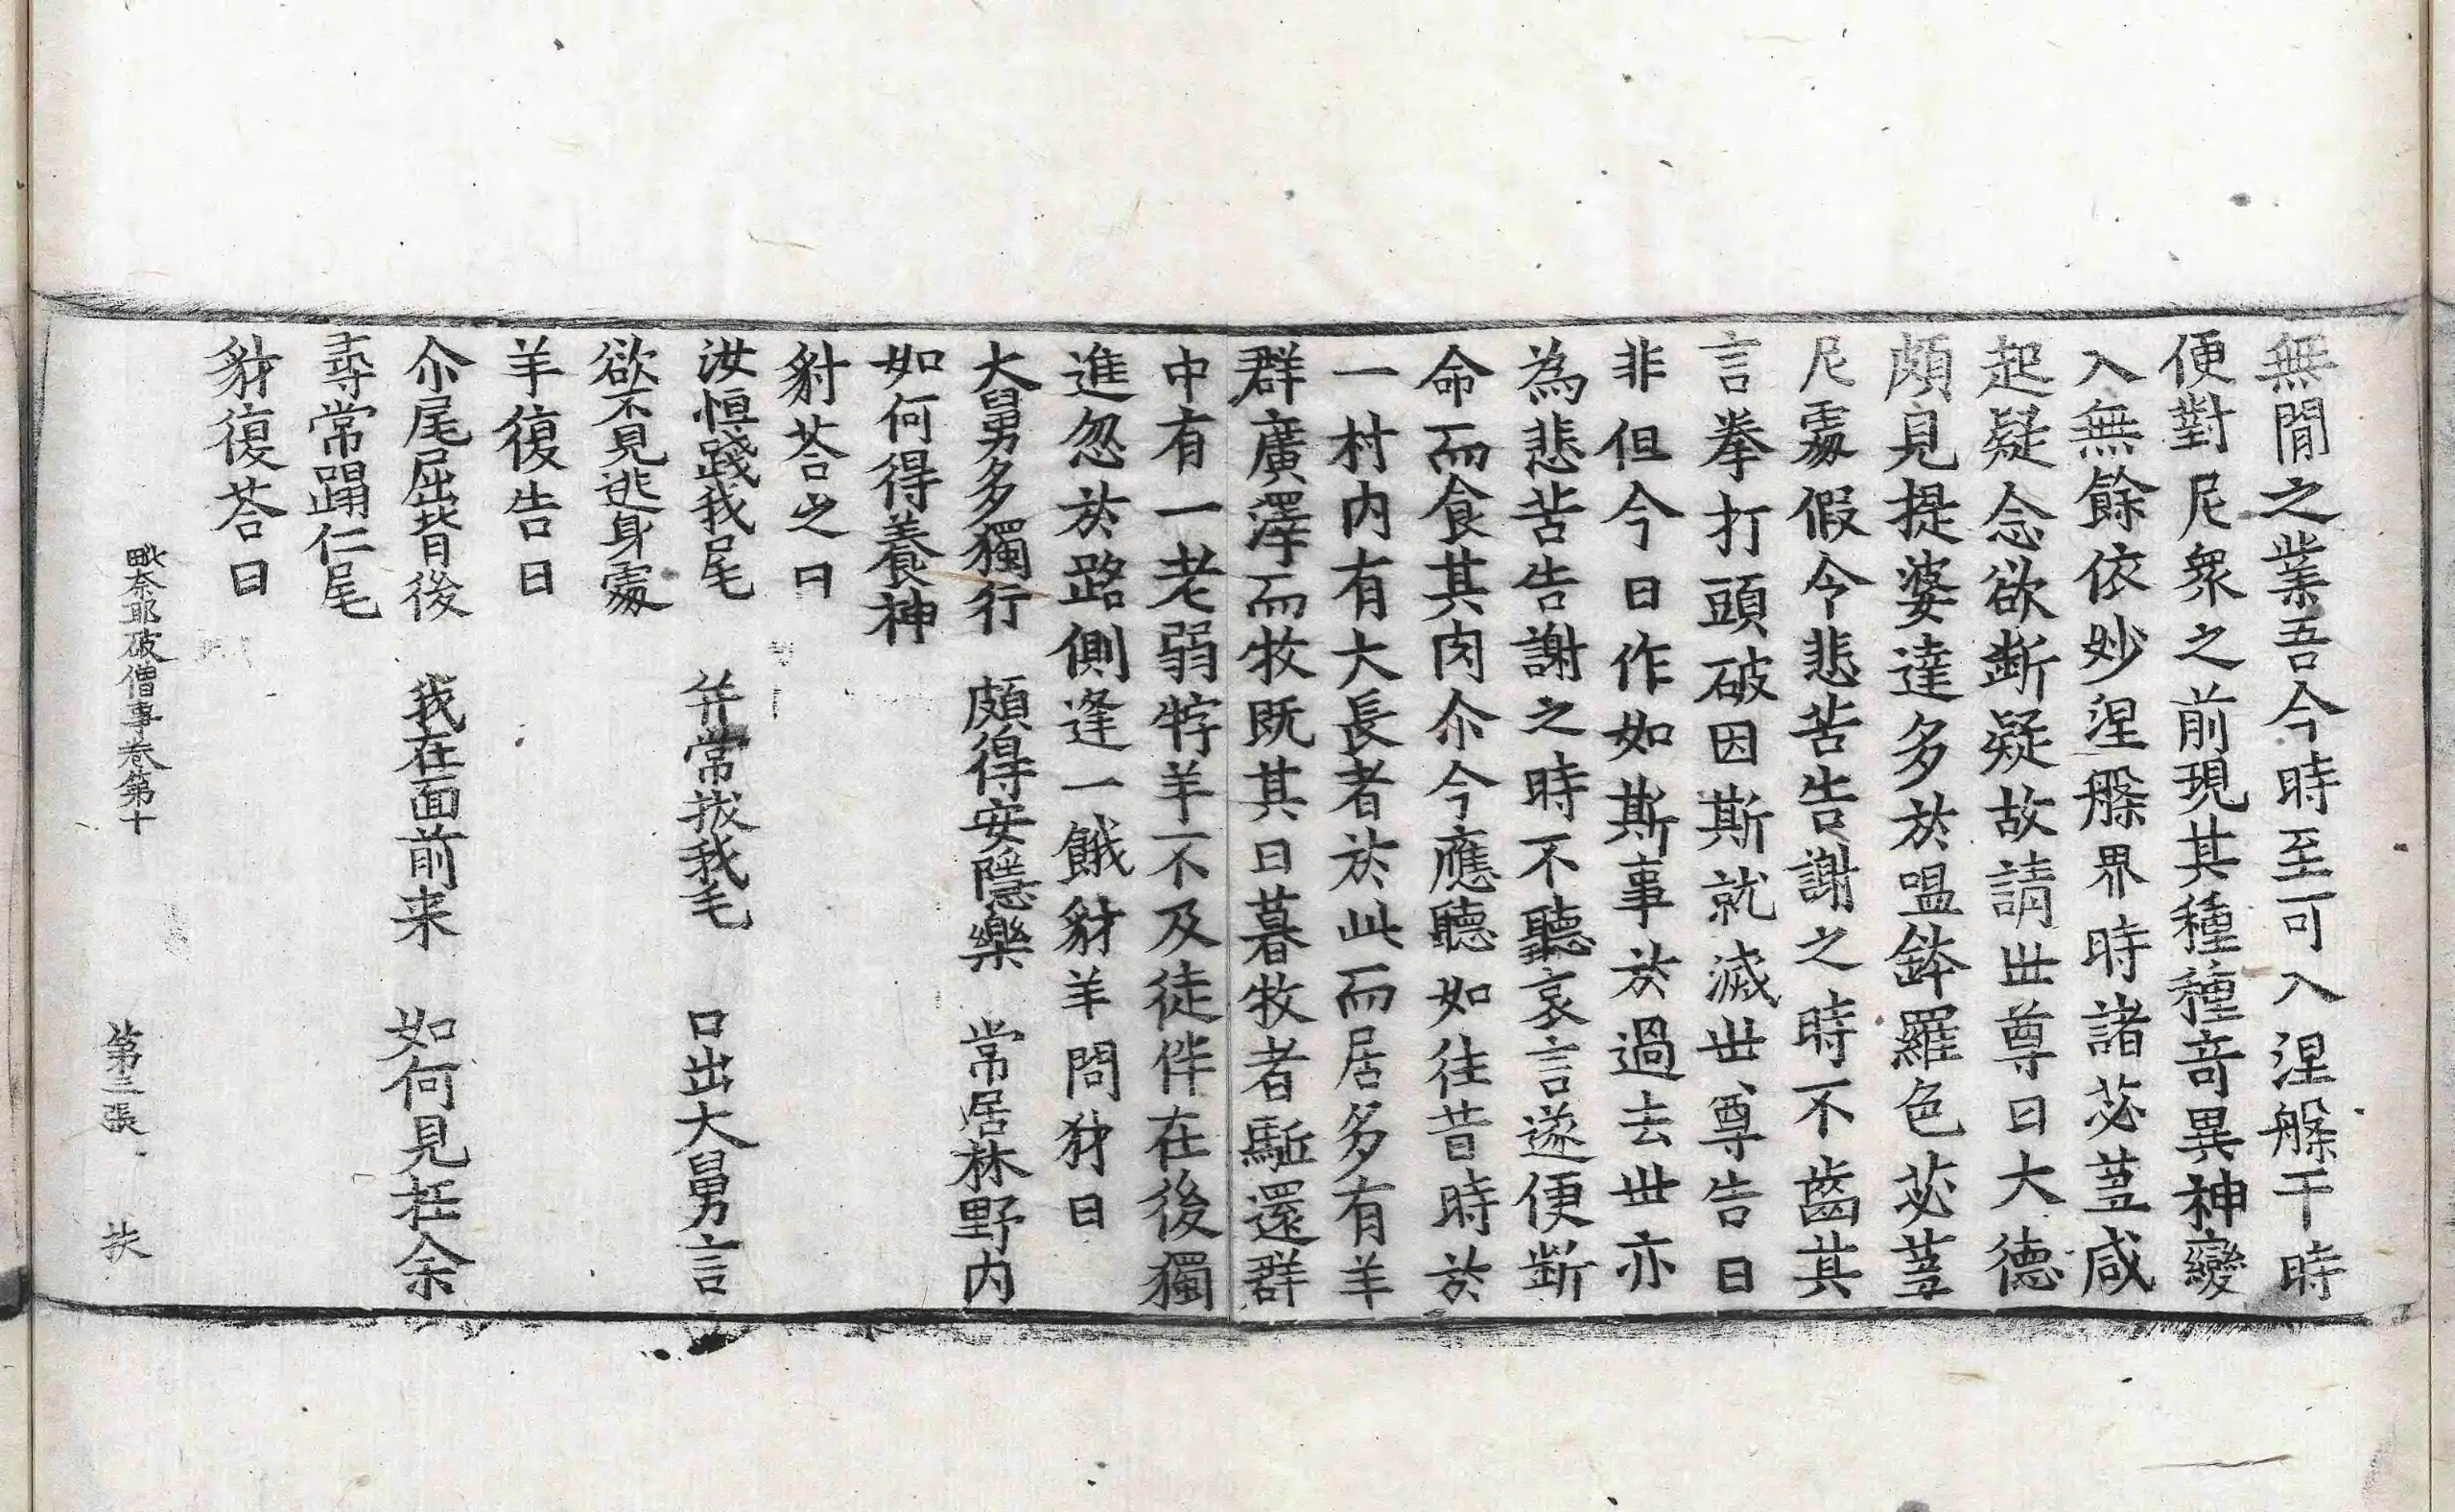 無閒之業吾今時至可入涅槃于時
便對尼衆之前現其種種竒異神變
入無餘依妙涅槃界時諸苾蒭咸
起疑念欲斷疑故請世尊曰大德
頗見提婆達多於嗢鉢羅色苾蒭
尼處假令悲苦告謝之時不齒其
言拳打頭破因斯就滅世尊告曰
非但今日作如斯事於過去世亦
為悲苦告謝之時不聽哀言遂便斷
命而食其肉尒今應聽如往昔時於
一村内有大長者於此而居多有羊
群廣澤而牧既其日暮牧者駈還群
中有一老弱牸羊不及徒伴在後獨
進忽於路側逢一餓豺羊問豺曰
大舅多獨行　頗得安隱樂　常居林野内
如何得養神
豺荅之曰
汝恒踐我尾　并常拔我毛　口出大舅言
欲不見逃身處
羊復告曰
尒尾屈背後　我在面前来　如何見抂余
尋常踊仁尾
豺復荅曰
毗奈耶破僧事卷第十　第三張　扶